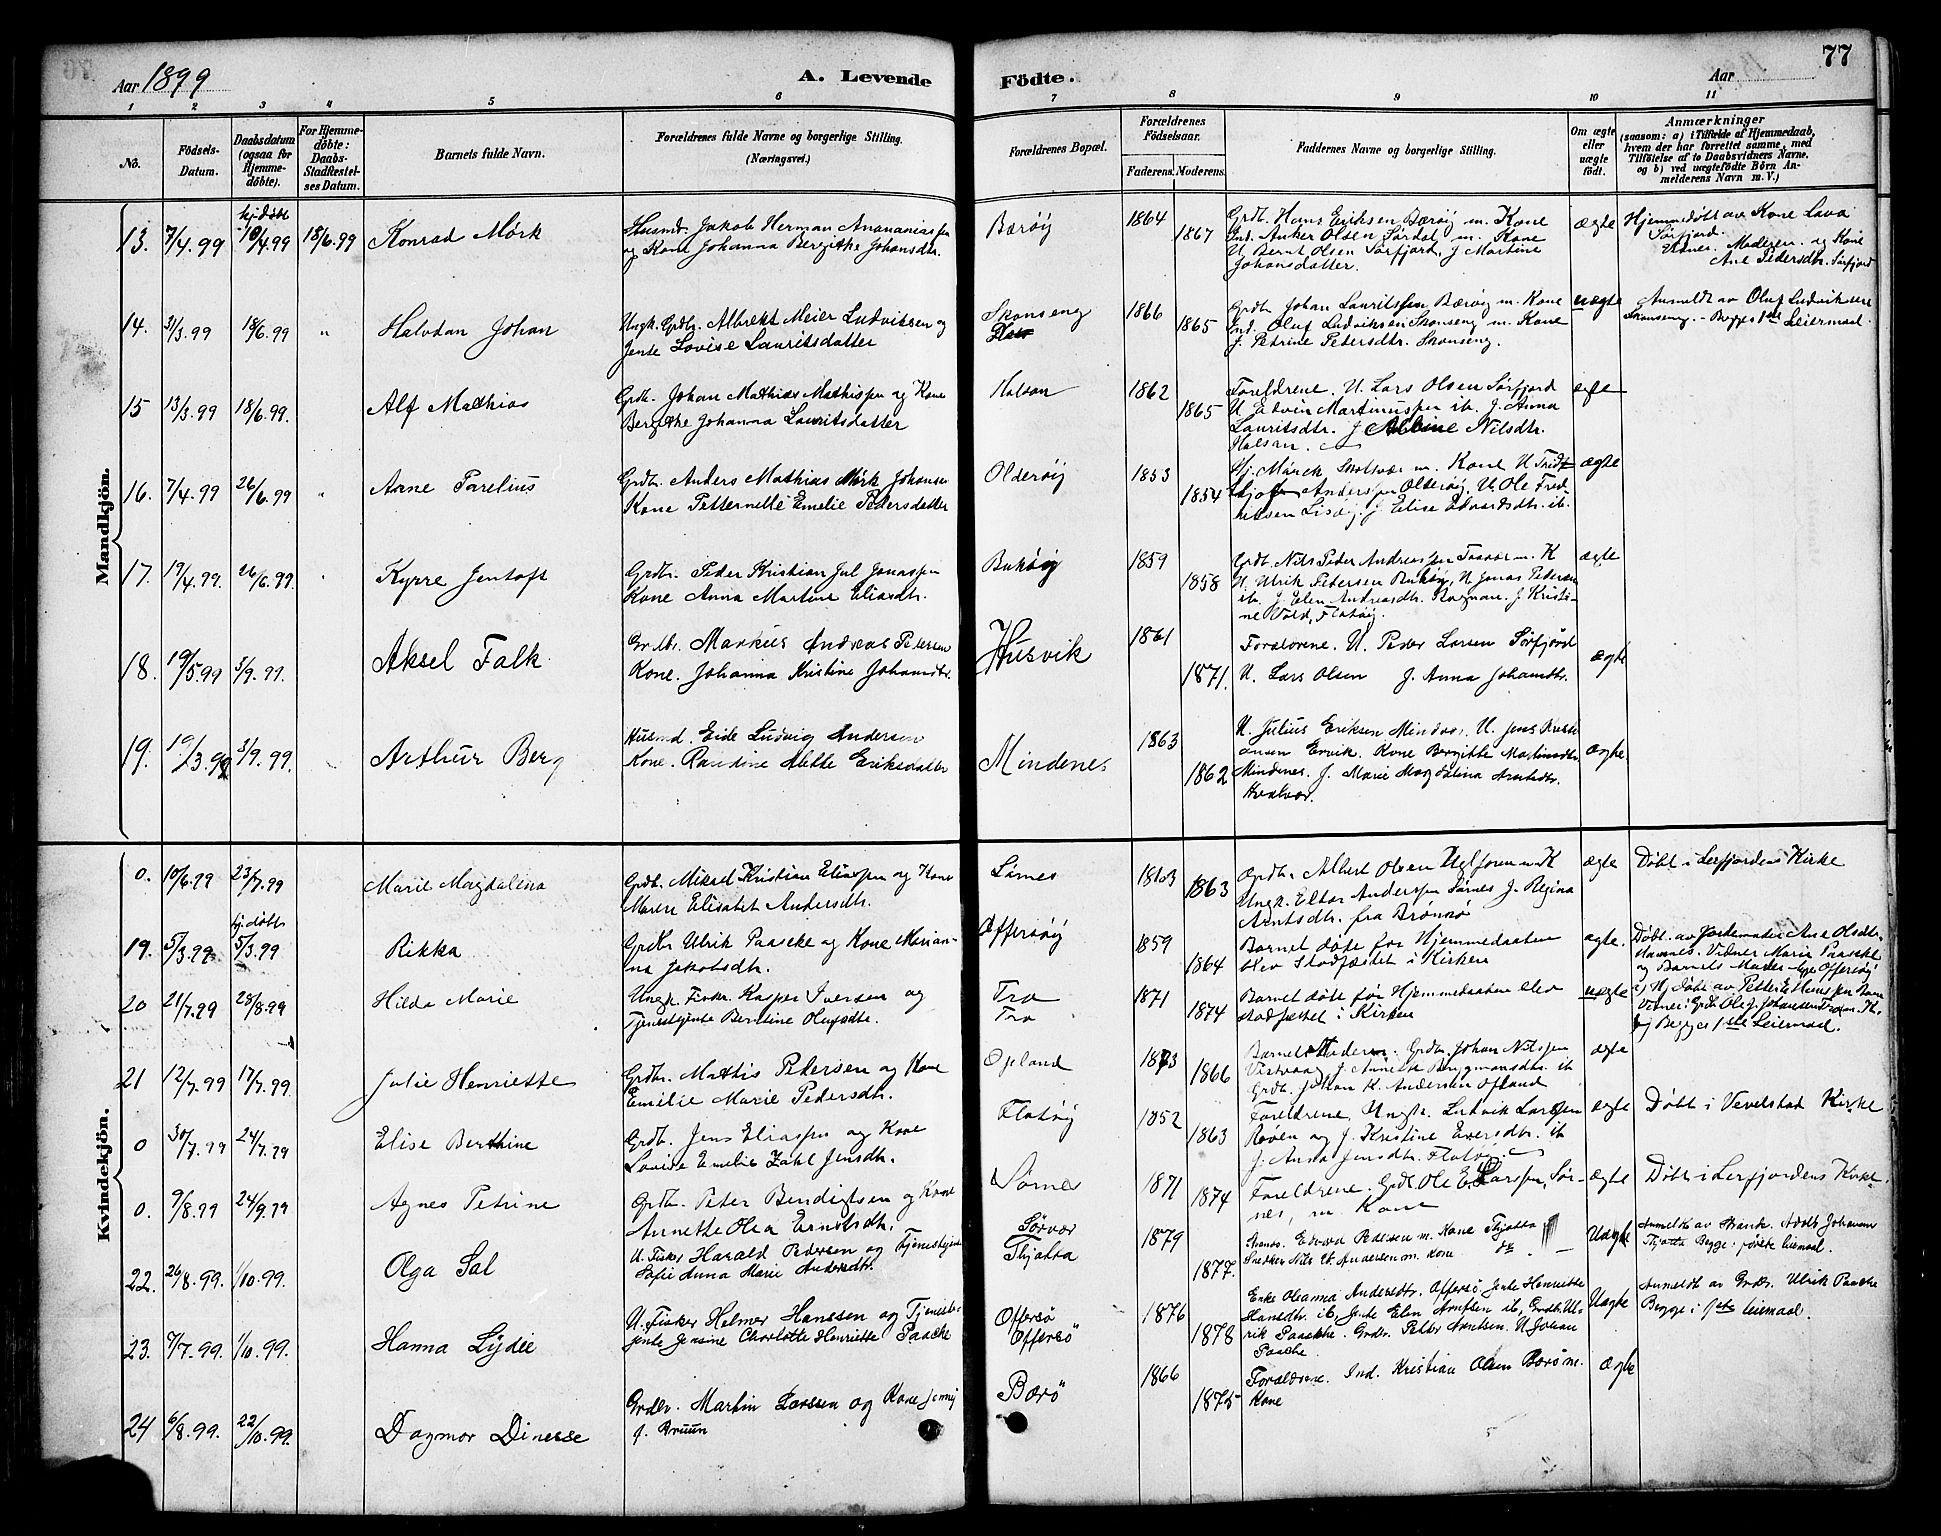 Aar 1899
A. Levende Födte.
Aar
77
1 2 3 4 5 6 7 8 9 10 11
No.
Födsels-Datum.
Daabsdatum (ogsaa for Hjemme-döbte).
For Hjemme-döbte: Daabs-Stadfæstel-ses Datum.
Barnets fulde Navn.
Forældrenes fulde Navne og borgerlige Stilling. (Næringsvei.)
Forældrenes Bopæl.
Forældrenes Födselsaar.
Faderens. Moderens.
Faddernes Navne og borgerlige Stilling.
Om ægte eller uægte födt.
Anmærkninger
(saasom: a) i Tilfælde af Hjemmedaab,
hvem der har forrettet samme, med
Tilföielse af to Daabsvidners Navne,
og b) ved uægtefödte Börn An-
melderens Navn m. V.)
Mandkjön.
13. 7/4.99 hj.döbt 10/4.99 18/6.99 Konrad Mörk
Husmd. Jakob Herman Ananiassen
og Kone Johanna Bergitke Johansdtr.
Bæröy 1864 1867
Grdb. Hans Eriksen Bæröy m. Kone
Ind. Anker Olsen Sördal m. Kone
U. Bernt Olsen Sörfjord, J Martine
Johansdatter.
ægte
Hjemmedöbt av Kone Lava
Sörfjord.
Vidner. Moderen og Kone
Ane Pedersdtr. Sörfjord
14. 3/3.99 18/6.99 " Halvdan Johan
Ungk. Grdbr. Albrekt Meier Ludviksen og
Jente Lovise Lauritsdatter
Skonseng
1866 1865
Grdb Johan Lauritssen Bæröy m. Kone
Ind. Oluf Ludviksen Skonseng m. Kone
J. Petrine Pedersdtr. Skonseng.
uægte
Anmeldt av Oluf Ludviksen
Skonseng. - Begges 1ste Leiermaal.
15 13/3.99 18/6.99. Alf Mathias
Grdb. Johan Mathias Mathissen og Kone
Bergitke Johanna Lauritsdatter
Halsan 1862 1865
Foreldrene. U. Lars Olsen Sörfjord
U. Edvin Martinussen ib. J. Anna
Lauritsdtr. J Albine Nilsdtr.
Halsan.
ægte
16. 7/4.99 26/6.99 " Arne Parelius
Grdb. Anders Mathias Mörk Johansen
Kone Petternelle Emelie Pedersdatter
Olderöy 1853 1854
Hj. Mörck Skotsvær m. Kone U Fridt-
hjof Anderssen Olderöy. U. Ole Fred-
riksen Lisöy. J Elise Edvardsdtr. ib.
ægte
17. 19/4.99. 26/6.99. " Kyrre Jentoft
Grdb. Peder Kristian Jul Jonassen
Kone Anna Martine Eliasdtr.
Buköy 1859 1858
Grdb. Nils Peder Andreassen Traavær m. K
U. Ulrik Petersen Buköy, U. Jonas Pedersen
ib. J. Elen Andreasdtr. Rognan. J Kristi-
ne Vold, Flatöy.
ægte
18. 19/5.99 3/9.99. Aksel Falk
Grdbr. Markus Andreas Petersen
Kone. Johanna Kristine Johansdtr.
Husvik 1861 1871.
Forældrene. U. Peder Larsen Sörfjord
U. Lars Olsen J. Anna Johansdtr.
ægte
19. 19/3.99 3/9.99. Arthur Berg
Husmd. Eide Ludvig Andersen
Kone. Randine Mette Eriksdatter
Mindenes 1863 1862
U. Julius Eriksen Mindnes. U. Jens Kristi
ansen Ervik. Kone Bergitte Martinusdtr
Mindenes. J. Marie Magdalina Arntsdtr.
Hvalvær.
ægte.
Kvindekjön.
0. 10/6.99 23/7.99 Marie Magdalina
Grdb. Mikael Kristian Eliassen og Kone
Maren Elisabet Andersdtr.
Sörnes 1863 1863
Grdb. Albert Olsen m. K
Ungk. Eltor Anderssen Sörnes J. Regina
Arntsdtr. fra Brönnö
ægte
Döbt i Leirfjordens Kirke
19. 5/3.99 hj.döbt 5/3.99 Rikka
Grdbr Ulrik Paaske og Kone Marian-
na Jakobsdtr.
Offersöy 1859 1864
Barnet döbt før Hjemmedaaben
blev stadfæstet i Kirken
ægte.
Döbt av Jordemoder Ane Olsdtr.
Havnes. Vidner Marie Paaske
og Barnets Moder begge Offersöy
20 21/7.99 28/8.99 Hilda Marie
Ungk. Fisker Kasper Iversen og
Tjenestejente Berntine Olufsdtr.
Tro
Tro
1871 1874
Barnet döbt før Hjemmedaaben blev
stadfæstet i Kirken
uægte
Begges 1ste Leiermaal.
21 12/7.99 17/7.99 Julie Henriette
Grdbr. Mathis Pedersen og Kone
Emilie Marie Pedersdtr.
Opland 1873 1866
Barnets Moder. Grdb. Johan Nilssen
Vistvaag J. Annette Bergmansdtr. ib
Grdb. Johan K. Andersen Opland
ægte
0 30/7.99 24/7.99 Elise Berthine
Grdb. Jens Eliassen og Kone
Lovise Emelie Zahl Jensdtr.
Flatöy 1852 1863
Foreldrene, Ungk. Ludvik Larssen
Røøen og J. Kristine Eversdtr. ib
J. Anna Jensdtr. Flatöy.
ægte
Döbt i Vevelstad Kirke
0. 9/8.99 24/9.99 Agnes Petrine
Grdb. Peter Bendigtsen og Kone
Annette Olea Ernstsdtr.
Sörnes 1871 1874
Foreldrene. Grdb Ole E. Larssen, Sör-
nes, m. Kone
ægte
Döbt i Leirfjordens Kirke.
22. 26/8.99. 1/10.99. Olga Sal
U. Fisker Harald Pedersen og Tjenestejente
Sofie Anna Marie Andersdtr.
Sörvær
Thjøtta
1879 1877.
Edvard Pedersen m. Kone Thjøtta
Snedker Nils Ut. Andersen m. Kone do
Uægte
Anmeldt av Adolf Johansen
Thjøtta Begges förste leiemaal.
23. 7/7.99. 1/10.99. Hanna Lydie
U. Fisker Helmer Hanssen og Tjeneste-
jente Jensine Charlotte Henriette Paaske
Offersö
Offersö
1876 1878
Enke Oleanna Andersdtr. Offersö. Jente Henriette
Hansdtr ib, Jente Elen Arntsen ib, Grdb. Ul-
rik Paaske. Grdbr. Petter Arntsen. U Johan
Paaske.
Uægte
Anmeldt av Grdb. Ulrik Paaske
Begge i 1ste leiemaal.
24 6/8.99. 22/10.99. Dagmar Dinesse
Grdbr. Martin Larssen og Kone Jenny
J. Bruun
Bærö 1866 1875
Forældrene. Ind. Kristian Olsen Bærö m.
Kone
Ægte